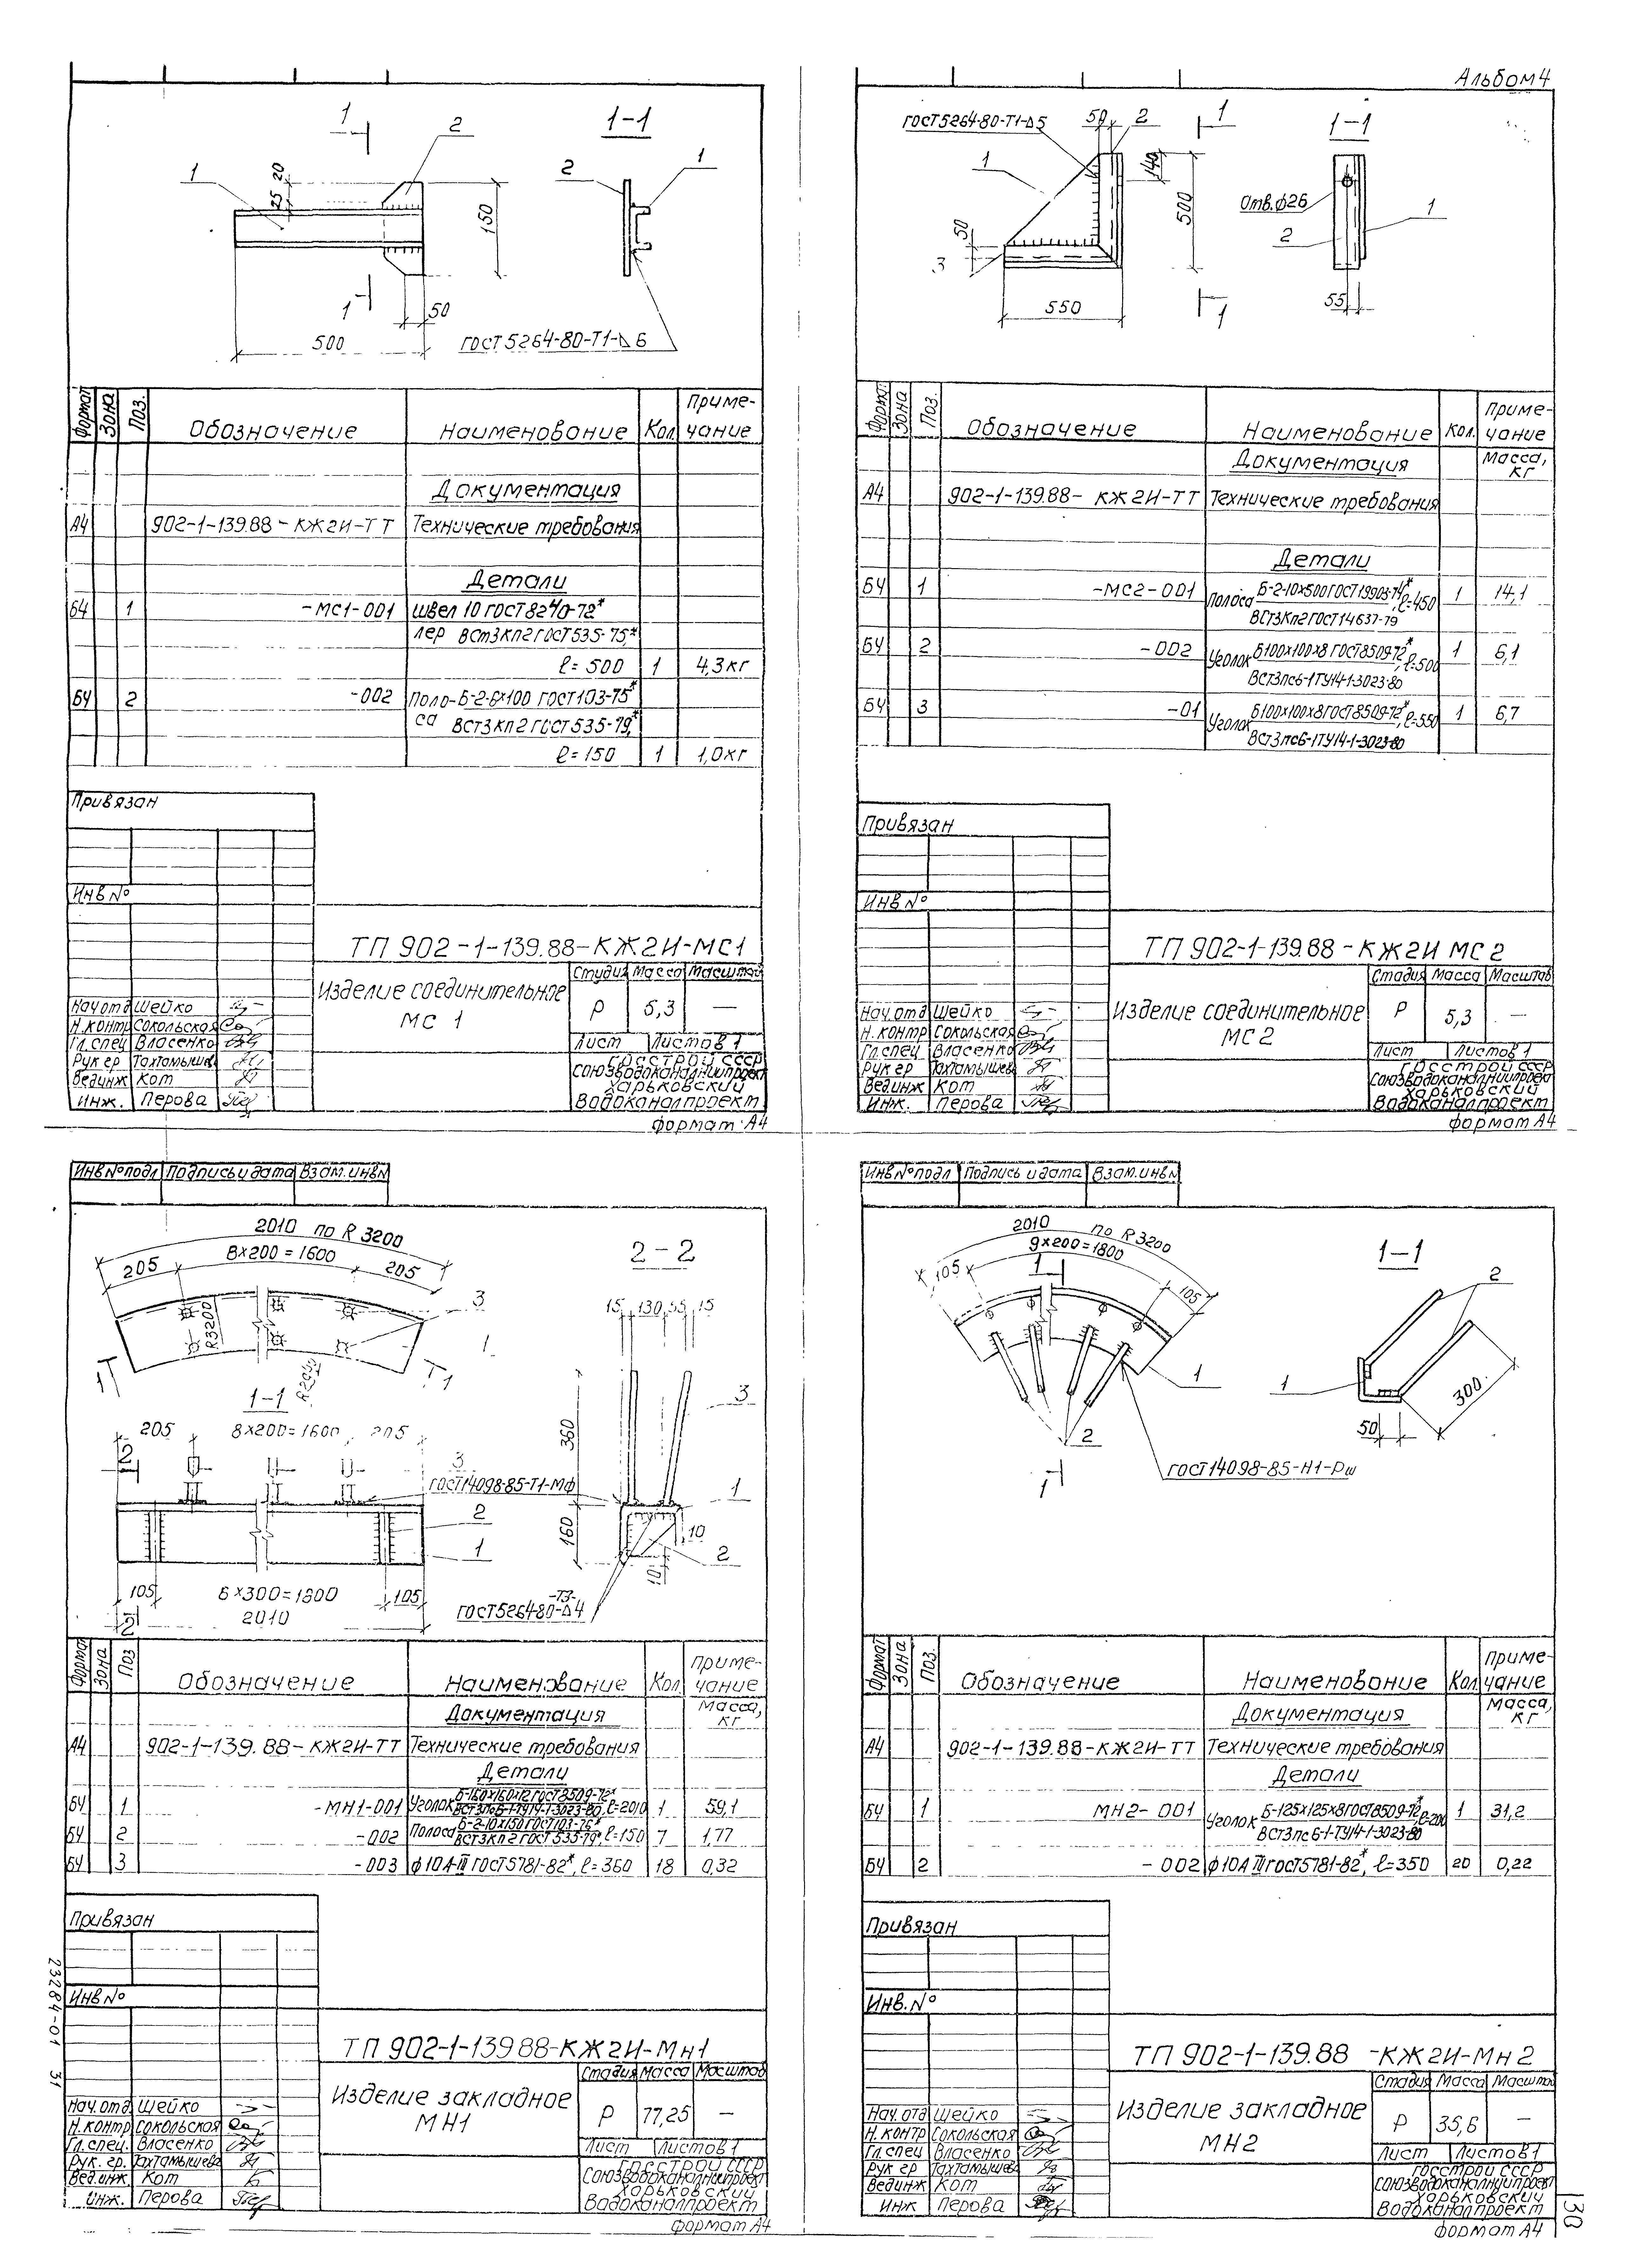 Альбом 4
1
2
1-1
1
20
25
150
2
1
1
50
500
ГОСТ 5264-80-Т1-⊿6
Формат
Зона
Поз.
Обозначение
Наименование
Кол.
Приме-
чание
Документация
А4 902-1-139.88-КЖ2И-ТТ Технические требования
Детали
БЧ 1 -МС1-001 Швел 10 ГОСТ 8240-72*
лер ВСт3Кп2 ГОСТ 535-75,*
ℓ=500 1 4,3кг
БЧ 2 -002 Поло- Б-2-6х100 ГОСТ 103-75*
са ВСт3кп2 ГОСТ 535-79,*
ℓ=150 1 1,0кг
Привязан
Инв №
ТП 902-1-139.88-КЖ2И-МС1
Изделие соединительное
МС 1
Стадия Масса Масштаб
Р 5,3 —
Лист Листов 1
Нач.отд Шейко
Н.контр Сокольская
Гл.спец Власенко
Рук гр Тахтамышева
Вед инж Кот
Инж. Перова
Госстрой СССР
Союзводоканалниипроект
Харьковский
Водоканалпроект
формат А4
ГОСТ 5264-80-Т1-⊿5
50
2
1
1-1
1
140
500
Отв.ф26
1
2
50
3
550
1
55
Формат
Зона
Поз.
Обозначение
Наименование
Кол.
Приме-
чание
Документация Масса, кг
А4 902-1-139.88-КЖ2И-ТТ Технические требования
Детали
БЧ 1 -МС2-001 Полоса Б-2-10х500 ГОСТ 19903-74*, ℓ=450 1 14,1
ВСт3Кп2 ГОСТ 14637-79
БЧ 2 -002 Уголок Б100х100х8 ГОСТ 8509-72*, ℓ=500 1 6,1
ВСт3пс6-1 ТУ14-1-3023-80
БЧ 3 -01 Уголок Б100х100х8 ГОСТ 8509-72*, ℓ=550 1 6,7
ВСт3пс6-1 ТУ14-1-3023-80
Привязан
Инв №
ТП 902-1-139.88-КЖ2И МС2
Изделие соединительное
МС 2
Стадия Масса Масштаб
Р 5,3 —
Лист Листов 1
Нач.отд Шейко
Н.контр Сокольская
Гл.спец Власенко
Рук гр Тахтамышева
Вед инж Кот
Инж. Перова
Госстрой СССР
Союзводоканалниипроект
Харьковский
Водоканалпроект
формат А4
Инв № подл Подпись и дата Взам. инв №
2010 по R 3200
8х200=1600
205
205
R3200
3
1
1
1
1-1
205
8х200=1600
205
2
3
ГОСТ 14098-85-Т1-Мф
2
1
105
6х300=1800
105
2010
2
ГОСТ 5264-80-Т3-⊿4
2-2
15
130
55
15
360
3
1
160
10
2
10
Формат
Зона
Поз
Обозначение
Наименование
Кол
Приме-
чание
Документация Масса, кг
А4 902-1-139.88-КЖ2И-ТТ Технические требования
Детали
БЧ 1 -МН1-001 Уголок Б-160х160х12 ГОСТ 8509-72*, ℓ=2010 1 59,1
ВСт3пс6-1 ТУ14-1-3023-80
БЧ 2 -002 Полоса Б-2-10х150 ГОСТ 103-76*, ℓ=150 7 1,77
ВСт3кп2 ГОСТ 535-79*
БЧ 3 -003 ф10А-III ГОСТ 5781-82*, ℓ=360 18 0,32
Привязан
Инв №
ТП 902-1-139 88-КЖ2И-МН1
Изделие закладное
МН1
Стадия Масса Масштаб
Р 77,25 —
Лист Листов 1
Нач.отд Шейко
Н.контр Сокольская
Гл.спец. Власенко
Рук. гр. Тахтамышева
Вед.инж. Кот
Инж. Перова
Госстрой СССР
Союзводоканалниипроект
Харьковский
Водоканалпроект
формат А4
23284-01 31
Инв № подл Подпись и дата Взам. инв №
2010 по R 3200
9х200=1800
105
1
105
1
2
ГОСТ 14098-85-Н1-Рш
1
1-1
2
1
50
300
Формат
Зона
Поз.
Обозначение
Наименование
Кол
Приме-
чание
Документация Масса, кг
А4 902-1-139.88-КЖ2И-ТТ Технические требования
Детали
БЧ 1 МН2-001 Уголок Б-125х125х8 ГОСТ 8509-72* 1 31,2
ВСт3пс6-1-ТУ14-1-3023-80
БЧ 2 -002 ф10А III ГОСТ 5781-82*, ℓ=350 20 0,22
Привязан
Инв. №
ТП 902-1-139.88 -КЖ2И-МН2
Изделие закладное
МН2
Стадия Масса Масштаб
Р 35,6 —
Лист Листов 1
Нач. отд Шейко
Н. контр Сокольская
Гл.спец Власенко
Рук гр Тахтамышева
Вед инж Кот
Инж Перова
Госстрой СССР
Союзводоканалниипроект
Харьковский
Водоканалпроект
формат А4